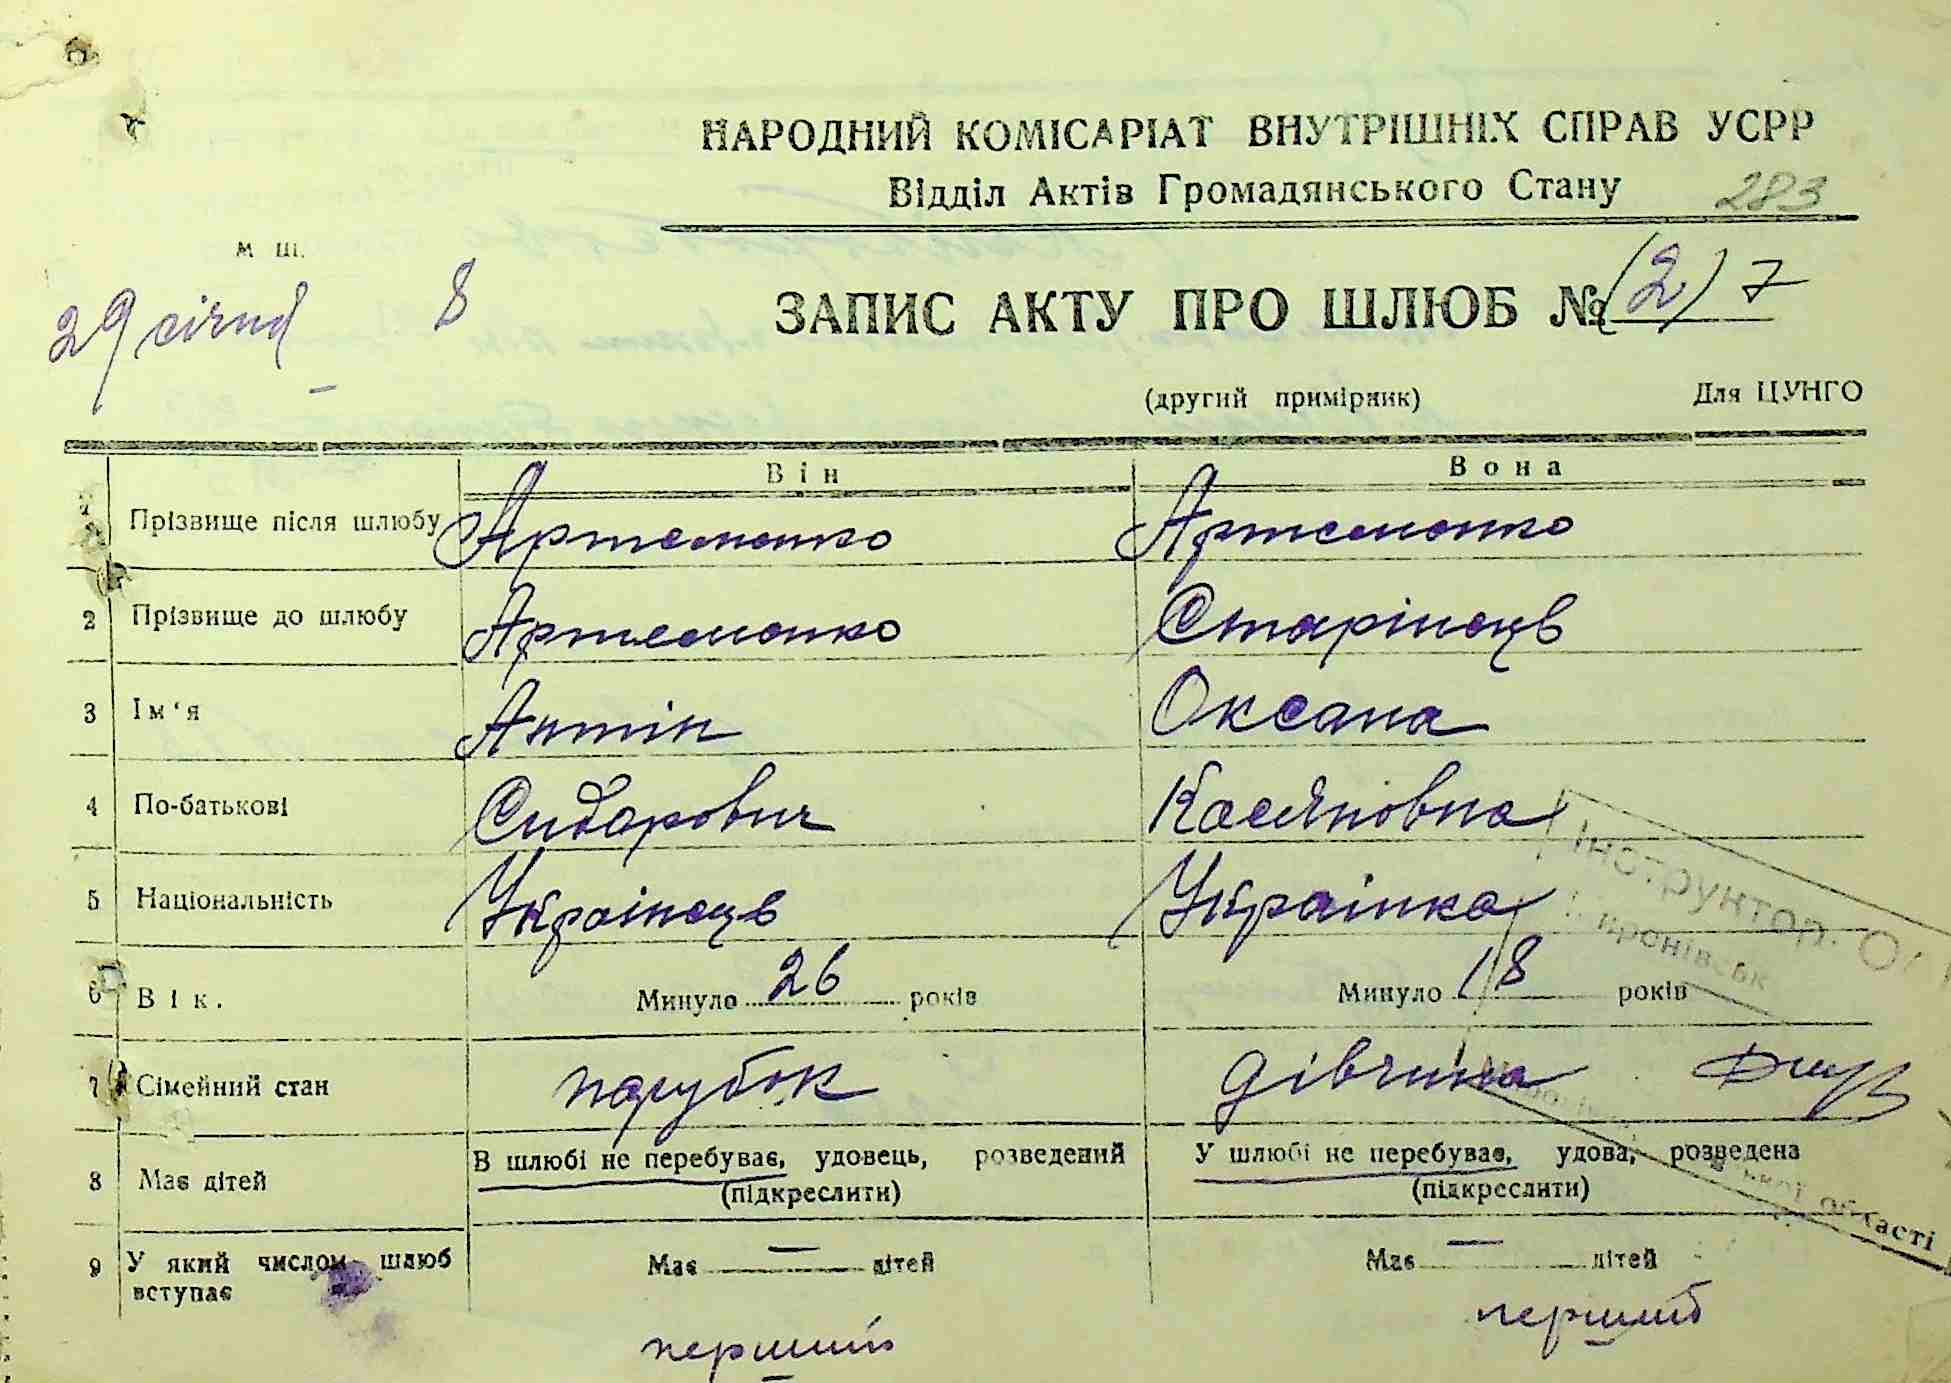 НАРОДНИЙ КОМІСАРІАТ ВНУТРІШНІХ СПРАВ УСРР
Відділ Актів Громадянського Стану 283
м ш.
29 січня 8
ЗАПИС АКТУ ПРО ШЛЮБ № (2) 7
(другий примірник) Для ЦУНГО
Він Вона
Прізвище після шлюбу Артеменко Артеменко
2 Прізвище до шлюбу Артеменко Старінець
3 Ім'я Антін Оксана
4 По-батькові Сидорович Касяновна
5 Національність Українець Українка
6 Вік. Минуло 26 років Минуло 18 років
7 Сімейний стан парубок дівчина
8 Має дітей В шлюбі не перебуває, удовець, розведений (підкреслити) У шлюбі не перебуває, удова, розведена (підкреслити)
9 У який числом шлюб вступає Має — дітей Має — дітей
перший перший
Інструктор
області